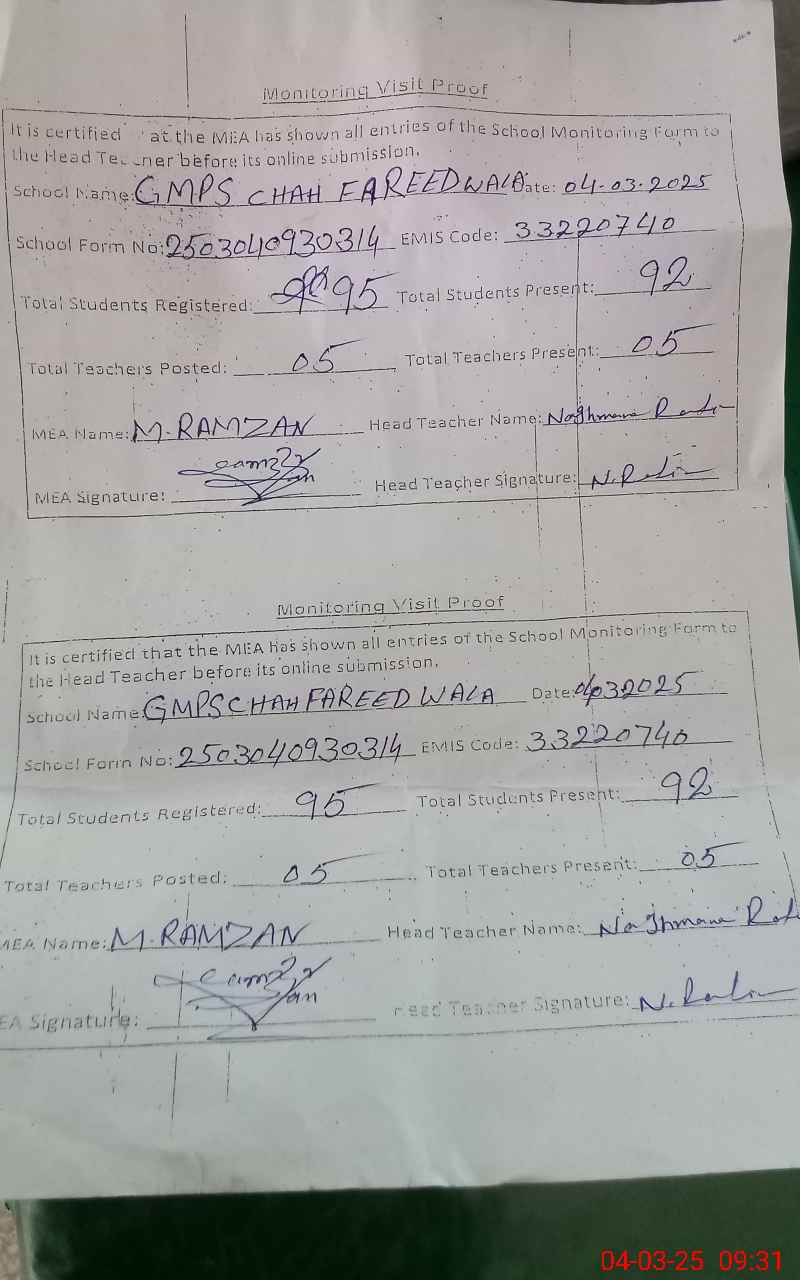 Monitoring Visit Proof
It is certified at the MEA has shown all entries of the School Monitoring Form to
the Head Teacher before its online submission.
School Name: GMPS CHAH FAREED WALA Date: 04-03-2025
School Form No: 2503040930314 EMIS Code: 33220740
Total Students Registered: 95 Total Students Present: 92
Total Teachers Posted: 05 Total Teachers Present: 05
MEA Name: M. RAMZAN Head Teacher Name: Naghmana
MEA Signature: Head Teacher Signature: N.
Monitoring Visit Proof
It is certified that the MEA has shown all entries of the School Monitoring Form to
the Head Teacher before its online submission.
School Name: GMPS CHAH FAREED WALA Date: 04032025
School Form No: 2503040930314 EMIS Code: 33220740
Total Students Registered: 95 Total Students Present: 92
Total Teachers Posted: 05 Total Teachers Present: 05
MEA Name: M. RAMZAN Head Teacher Name: Naghmana
EA Signature: Head Teacher Signature: N.
04-03-25 09:31